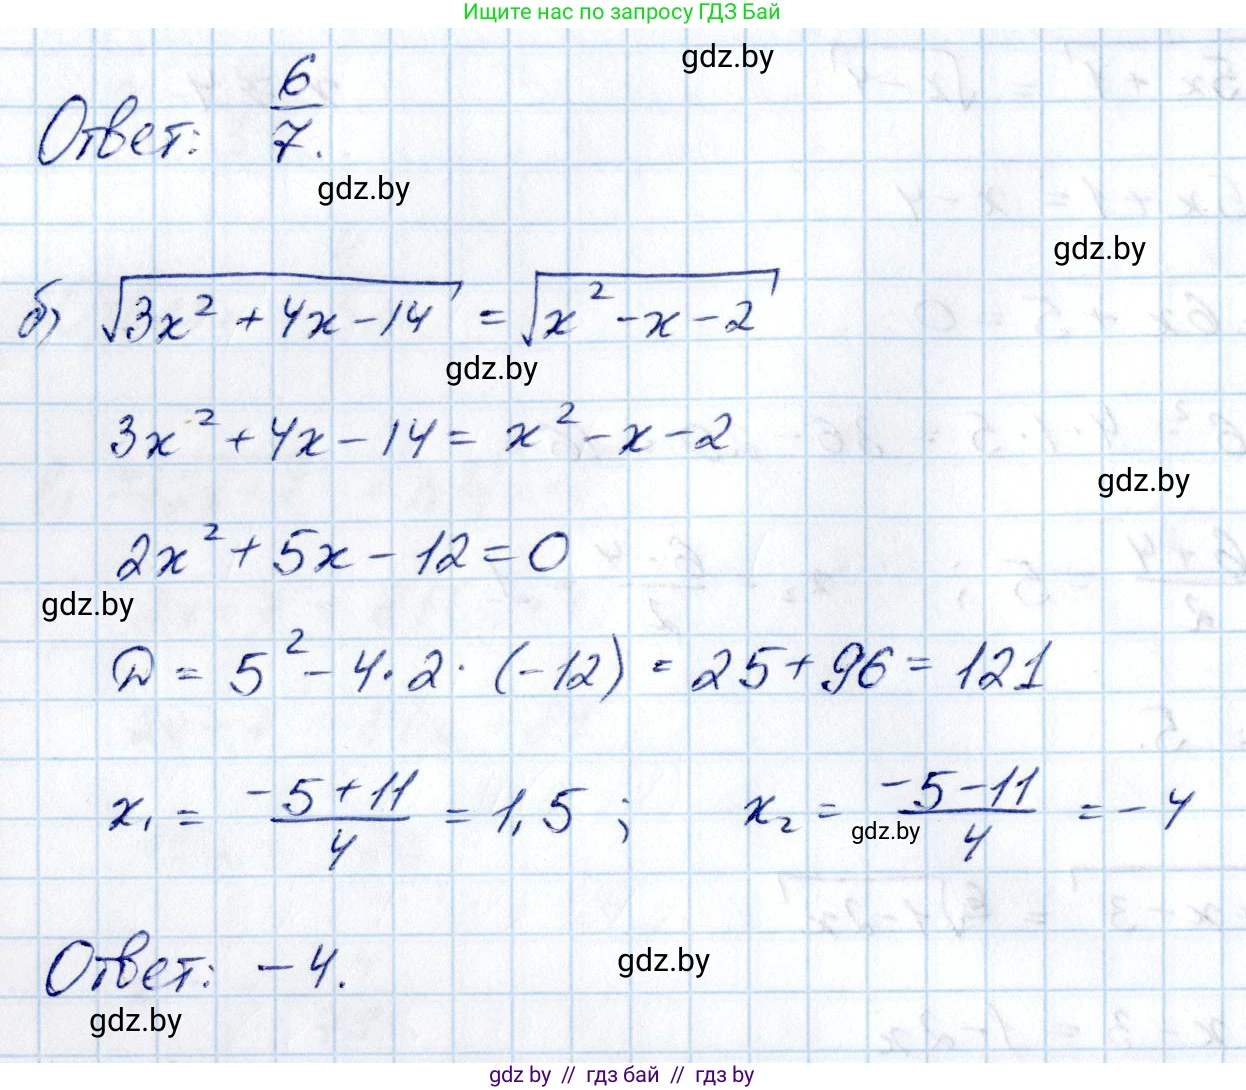 Ищите нас по запросу ГДЗ Бай
gdz.by
Ответ: 6/7.
gdz.by
gdz.by
б) √(3x² + 4x - 14) = √(x² - x - 2)
gdz.by
3x² + 4x - 14 = x² - x - 2
gdz.by
2x² + 5x - 12 = 0
gdz.by
D = 5² - 4·2·(-12) = 25 + 96 = 121
x₁ = (-5+11)/4 = 1,5 ; x₂ = (-5-11)/4 = -4
gdz.by
Ответ: -4.
gdz.by
gdz.by
gdz by // гдз бай // гдз by